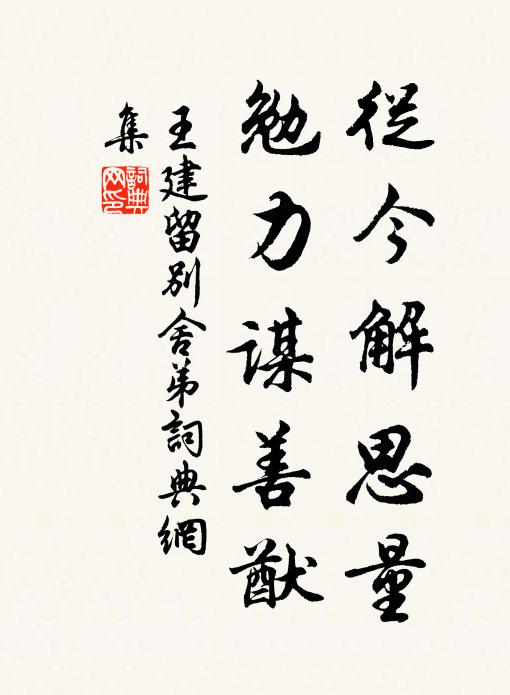 從今解思量
勉力謀善猷
王建留別舍弟詞典網
集
詞典
网印